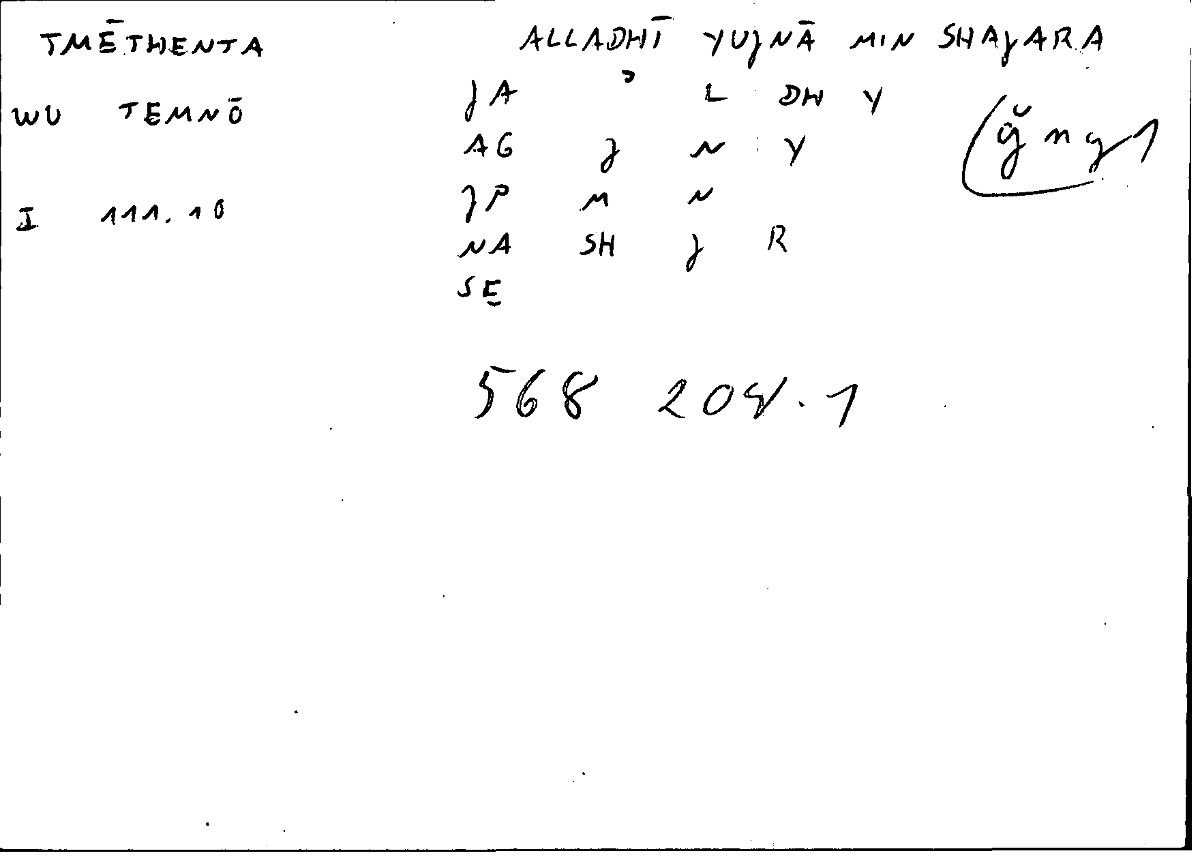 TMĒTHENTA ALLADHĪ YUJNĀ MIN SHAJARA
WU TEMNŌ JA ʾ L DH Y
AG J N Y
I 111.10 JP M N
NA SH J R
SE
ǧny1
568 204.1